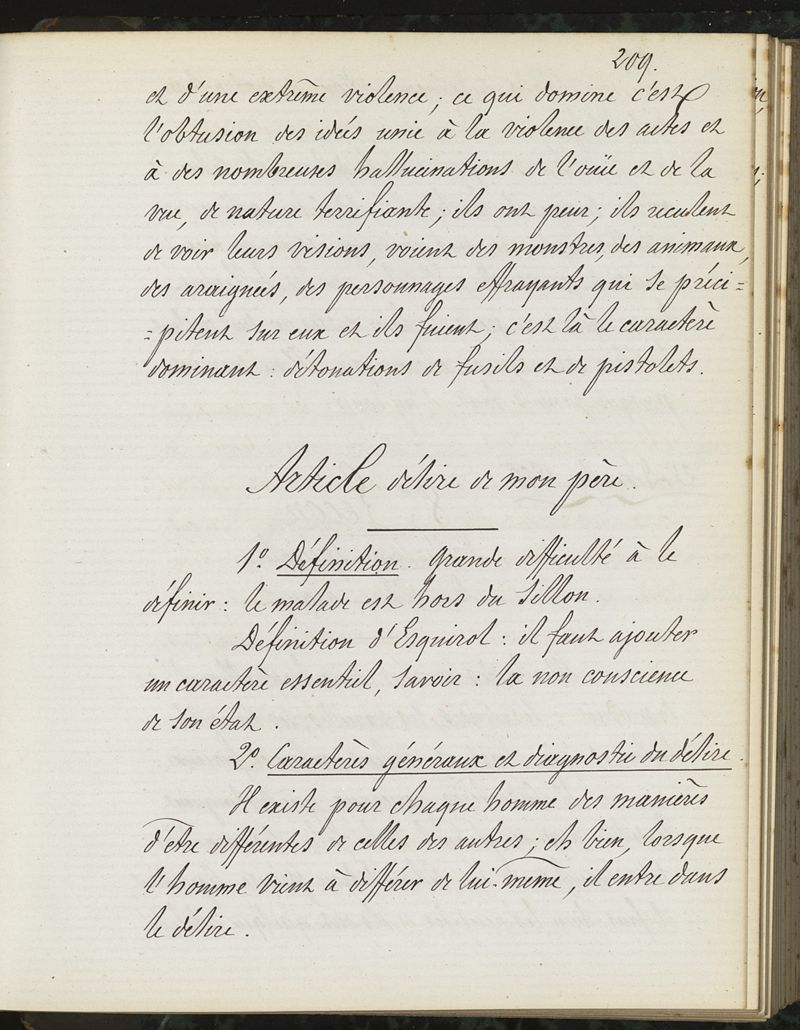 209.
et d'une extrême violence ; ce qui domine c'est
l'obtusion des idées unie à la violence des actes et
à des nombreuses hallucinations de l'ouïe et de la
vue, de nature terrifiante ; ils ont peur ; ils reculent
de voir leurs visions, voient des monstres, des animaux,
des araignées, des personnages effrayants qui se préci=
=pitent sur eux et ils fuient ; c'est là le caractère
dominant : détonations de fusils et de pistolets.
Article délire de mon père.
1º. Définition. Grande difficulté à le
définir : le malade est hors du Sillon.
Définition d'Esquirol : il faut ajouter
un caractère essentiel, savoir : la non conscience
de son état.
2º. Caractères généraux et diagnostic du délire.
Il existe pour chaque homme des manières
d'être différentes de celles des autres ; eh bien, lorsque
l'homme vient à différer de lui-même, il entre dans
le délire.